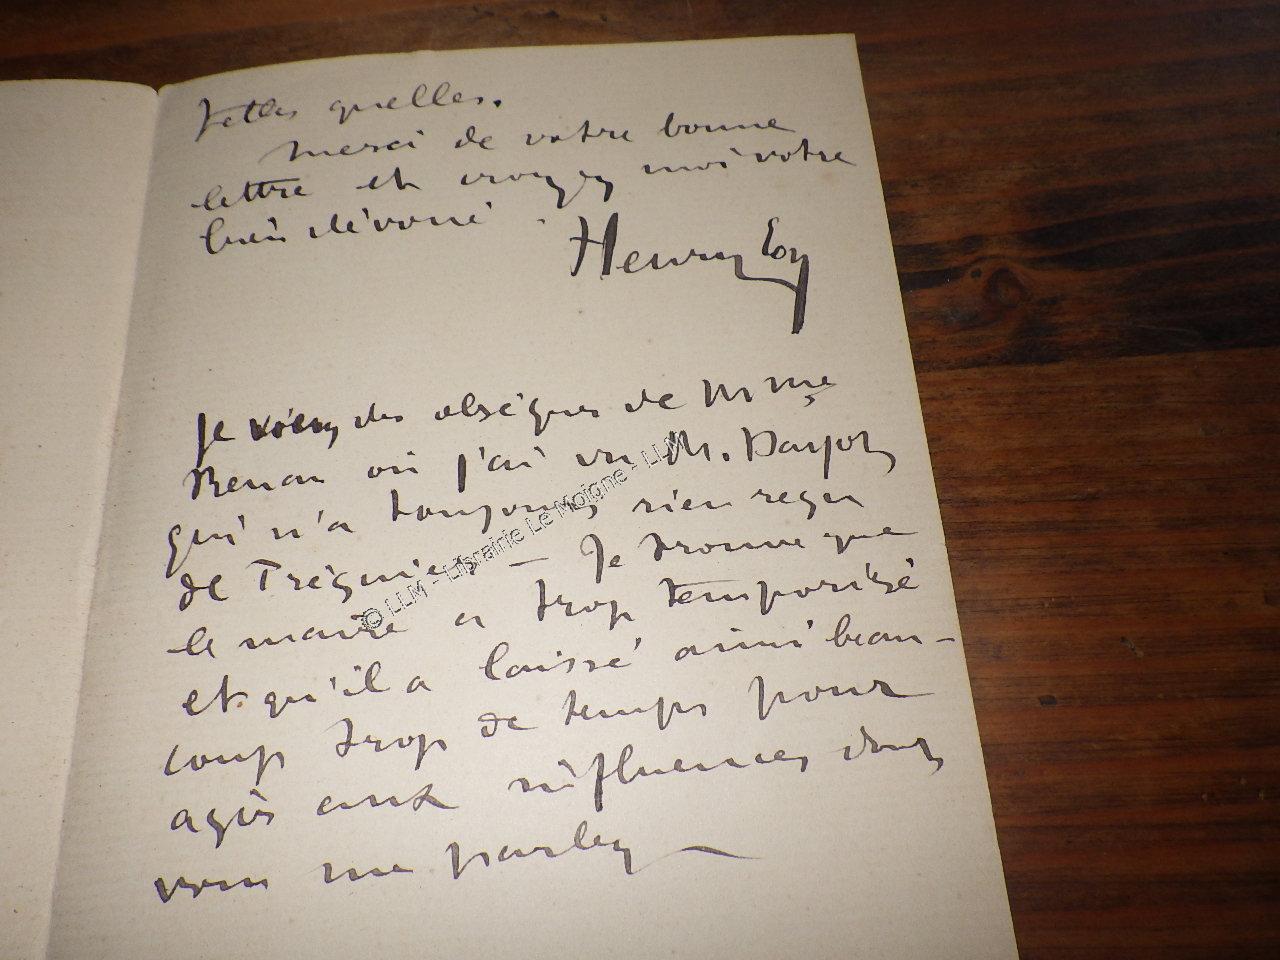 telles quelles.
Merci de votre bonne
lettre et croyez moi votre
bien dévoué.
Henry
Je viens des obsèques de Mme
Renan où j'ai vu M. Dayot
qui n'a toujours rien reçu
de Tréguier — Je trouve que
le maire a trop temporisé
et qu'il a laissé ainsi beau-
coup trop de temps pour
agir aux influences dont
vous me parlez —
© LLM - Librairie Le Moigne - LLM